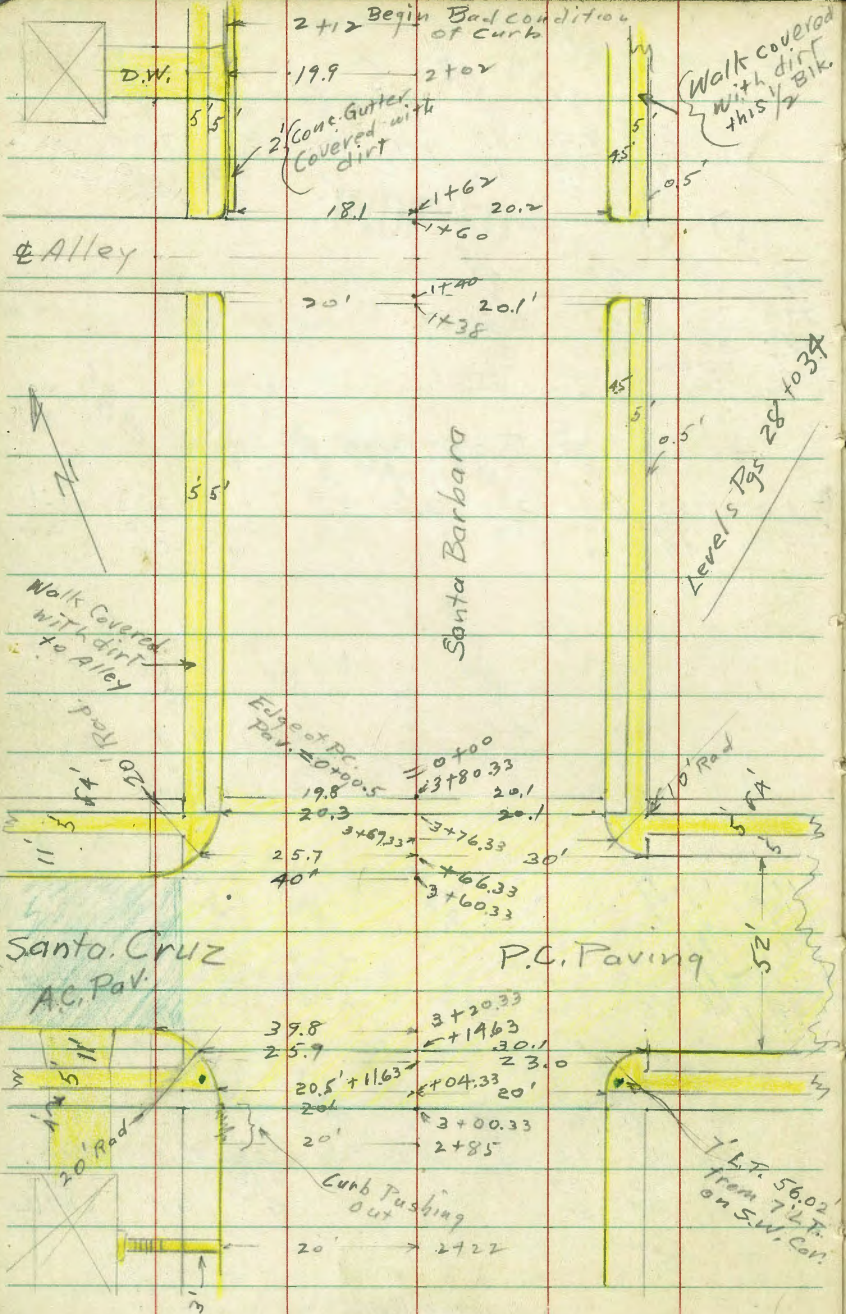 2+12 Begin Bad condition
of Curb
D.W.
19.9 2+02
Walk covered
with dirt
this 1/2 Blk.
5' 5'
2' Conc. Gutter
Covered with
dirt
5'
4.5'
0.5'
1+62
18.1 20.2
1+60
℄ Alley
1+40
20' 20.1'
1+38
4.5'
5'
0.5'
Levels Pgs 28 to 34
N
5' 5'
Santa Barbara
Walk Covered
with dirt
to Alley
20' Rad.
Edge of P.C.
Pav. = 0+00.5
0+00
3+80.33
19.8 20.1
10' Rad
20.3 20.1
3+76.33
3+69.33
25.7 30'
+66.33
40'
3+60.33
11' 5'
5'
52'
Santa Cruz
A.C. Pav.
P.C. Paving
3+20.33
39.8
+14.63
25.9 30.1
23.0
20.5' +11.63 +04.33 20'
20'
3+00.33
20' 2+85
11'
5'
20' Rad
Curb Pushing
Out
7' L.T. 56.02'
from 7' L.T.
on S.W. Cor.
20' 2+22
3'